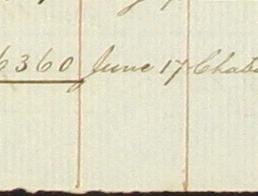 6360 June 17 Chata